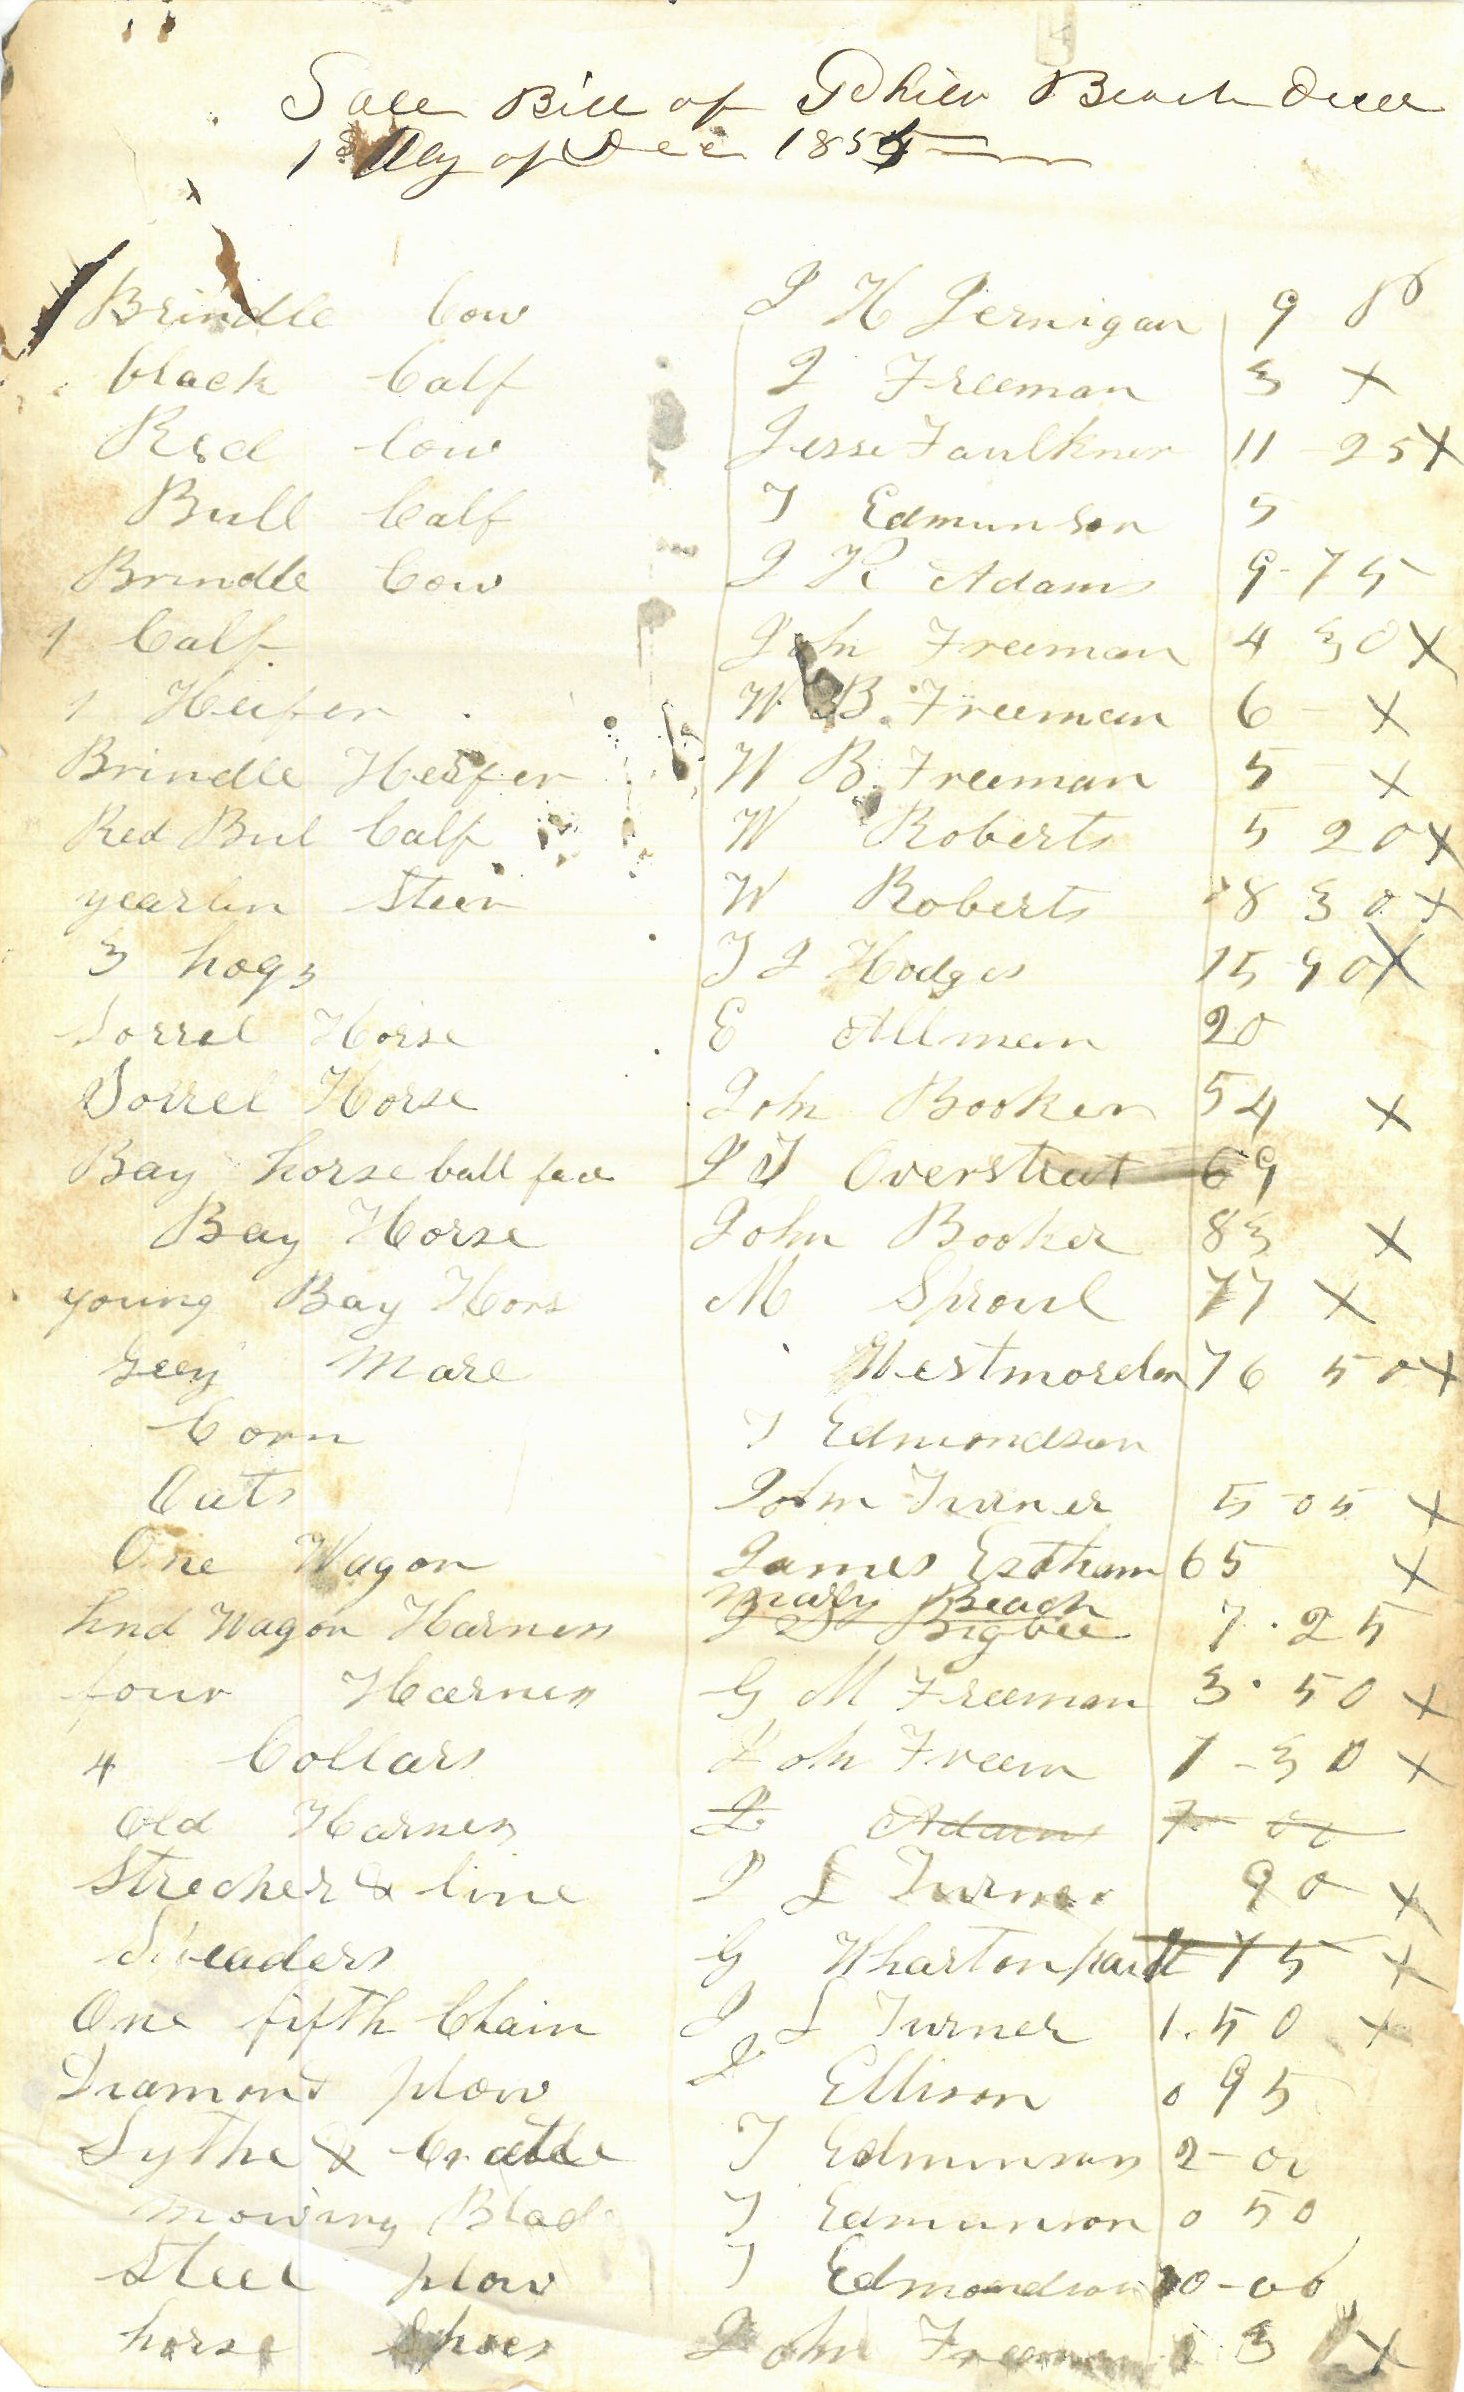 Sale Bill of Beach Decd
1st Day of Dec 185
Brindle Cow J H Jernigan 9 00
black Calf J Freeman 3 X
Red Cow Jesse Faulkner 11 - 25 X
Bull Calf T Edmunson 5
Brindle Cow J R Adams 9 - 75
1 Calf John Freeman 4 30 X
1 Heifer W B. Freeman 6 - X
Brindle Heifer W B. Freeman 5 - X
Red Bul Calf W Roberts 5 20 X
yearlin Steer W Roberts 8 30 X
3 hogs T J Hodges 15 90 X
Sorrel Horse E Allman 20
Sorrel Horse John Booker 54 X
Bay horse ball face J T Overstreat 69
Bay Horse John Booker 83 X
young Bay Hors M Sproul 77 X
grey Mare Westmorelan 76 50 X
Corn T Edmondson
Oats John Turner 5 - 05 X
One Wagon James Estham 65 X
Mary Beach
hnd Wagon Harness J S Bigbee 7 . 25
four Harness G M Freeman 3 . 50 X
4 Collars Joh Freem 1 - 30 X
Old Harness J Adams 7 - 00
Strecher & line J L Turner 90 X
G Wharton paid 75 X
One fifth Chain J L Turner 1. 50 X
Diamond plow J Ellison 0 95
Sythe & Cradle T Edmunson 2 - 00
Mowing Blad T Edmunson 0 50
Steel plow T Edmondson 10 - 00
horse Shoes John Freeman 1 3 X